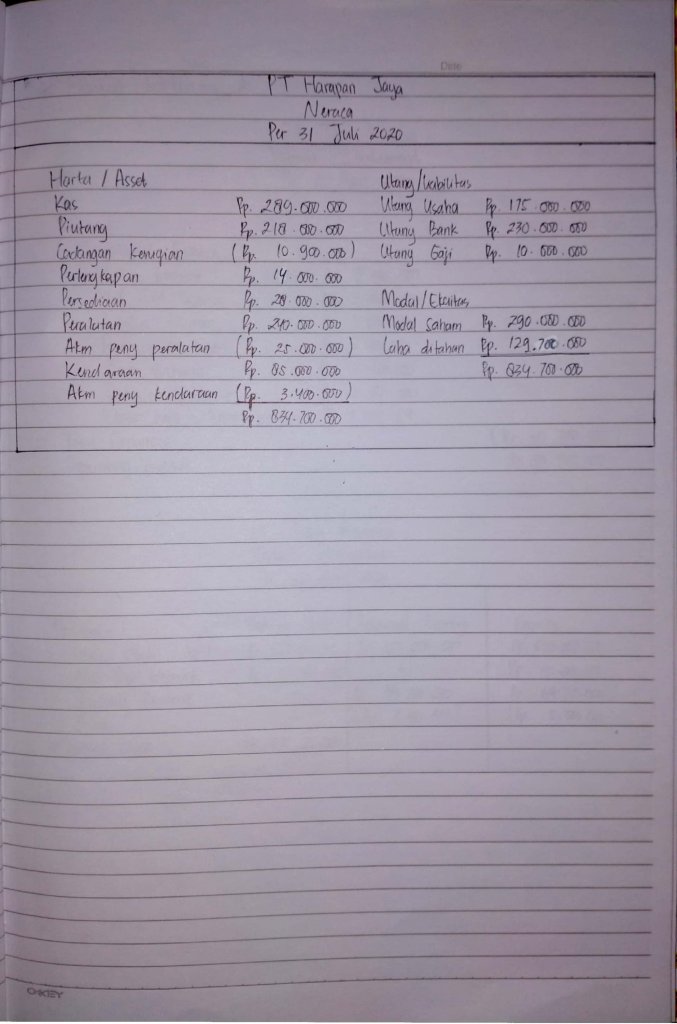 Date
PT Harapan Jaya
Neraca
Per 31 Juli 2020
Harta / Asset Utang/Liabilitas
Kas Rp. 289.000.000 Utang Usaha Rp. 175.000.000
Piutang Rp. 218.000.000 Utang Bank Rp. 230.000.000
Cadangan Kerugian (Rp. 10.900.000) Utang Gaji Rp. 10.000.000
Perlengkapan Rp. 14.000.000
Persediaan Rp. 28.000.000 Modal/Ekuitas
Peralatan Rp. 240.000.000 Modal Saham Rp. 290.000.000
Akm peny peralatan (Rp. 25.000.000) Laba ditahan Rp. 129.700.000
Kendaraan Rp. 85.000.000 Rp. 834.700.000
Akm peny kendaraan (Rp. 3.400.000)
Rp. 834.700.000
OKEY